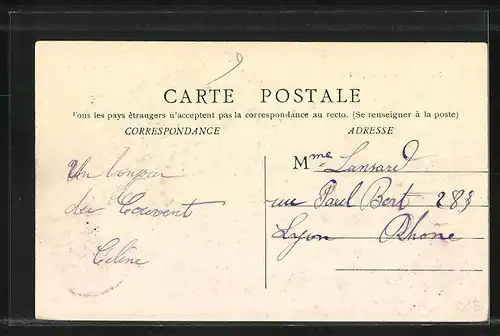 CARTE POSTALE
Tous les pays étrangers n'acceptent pas la correspondance au recto. (Se renseigner à la poste)
CORRESPONDANCE
ADRESSE
Un bonjour
du Couvent
Céline
Mme Lansard
rue Paul Bert 283
Lyon Rhône